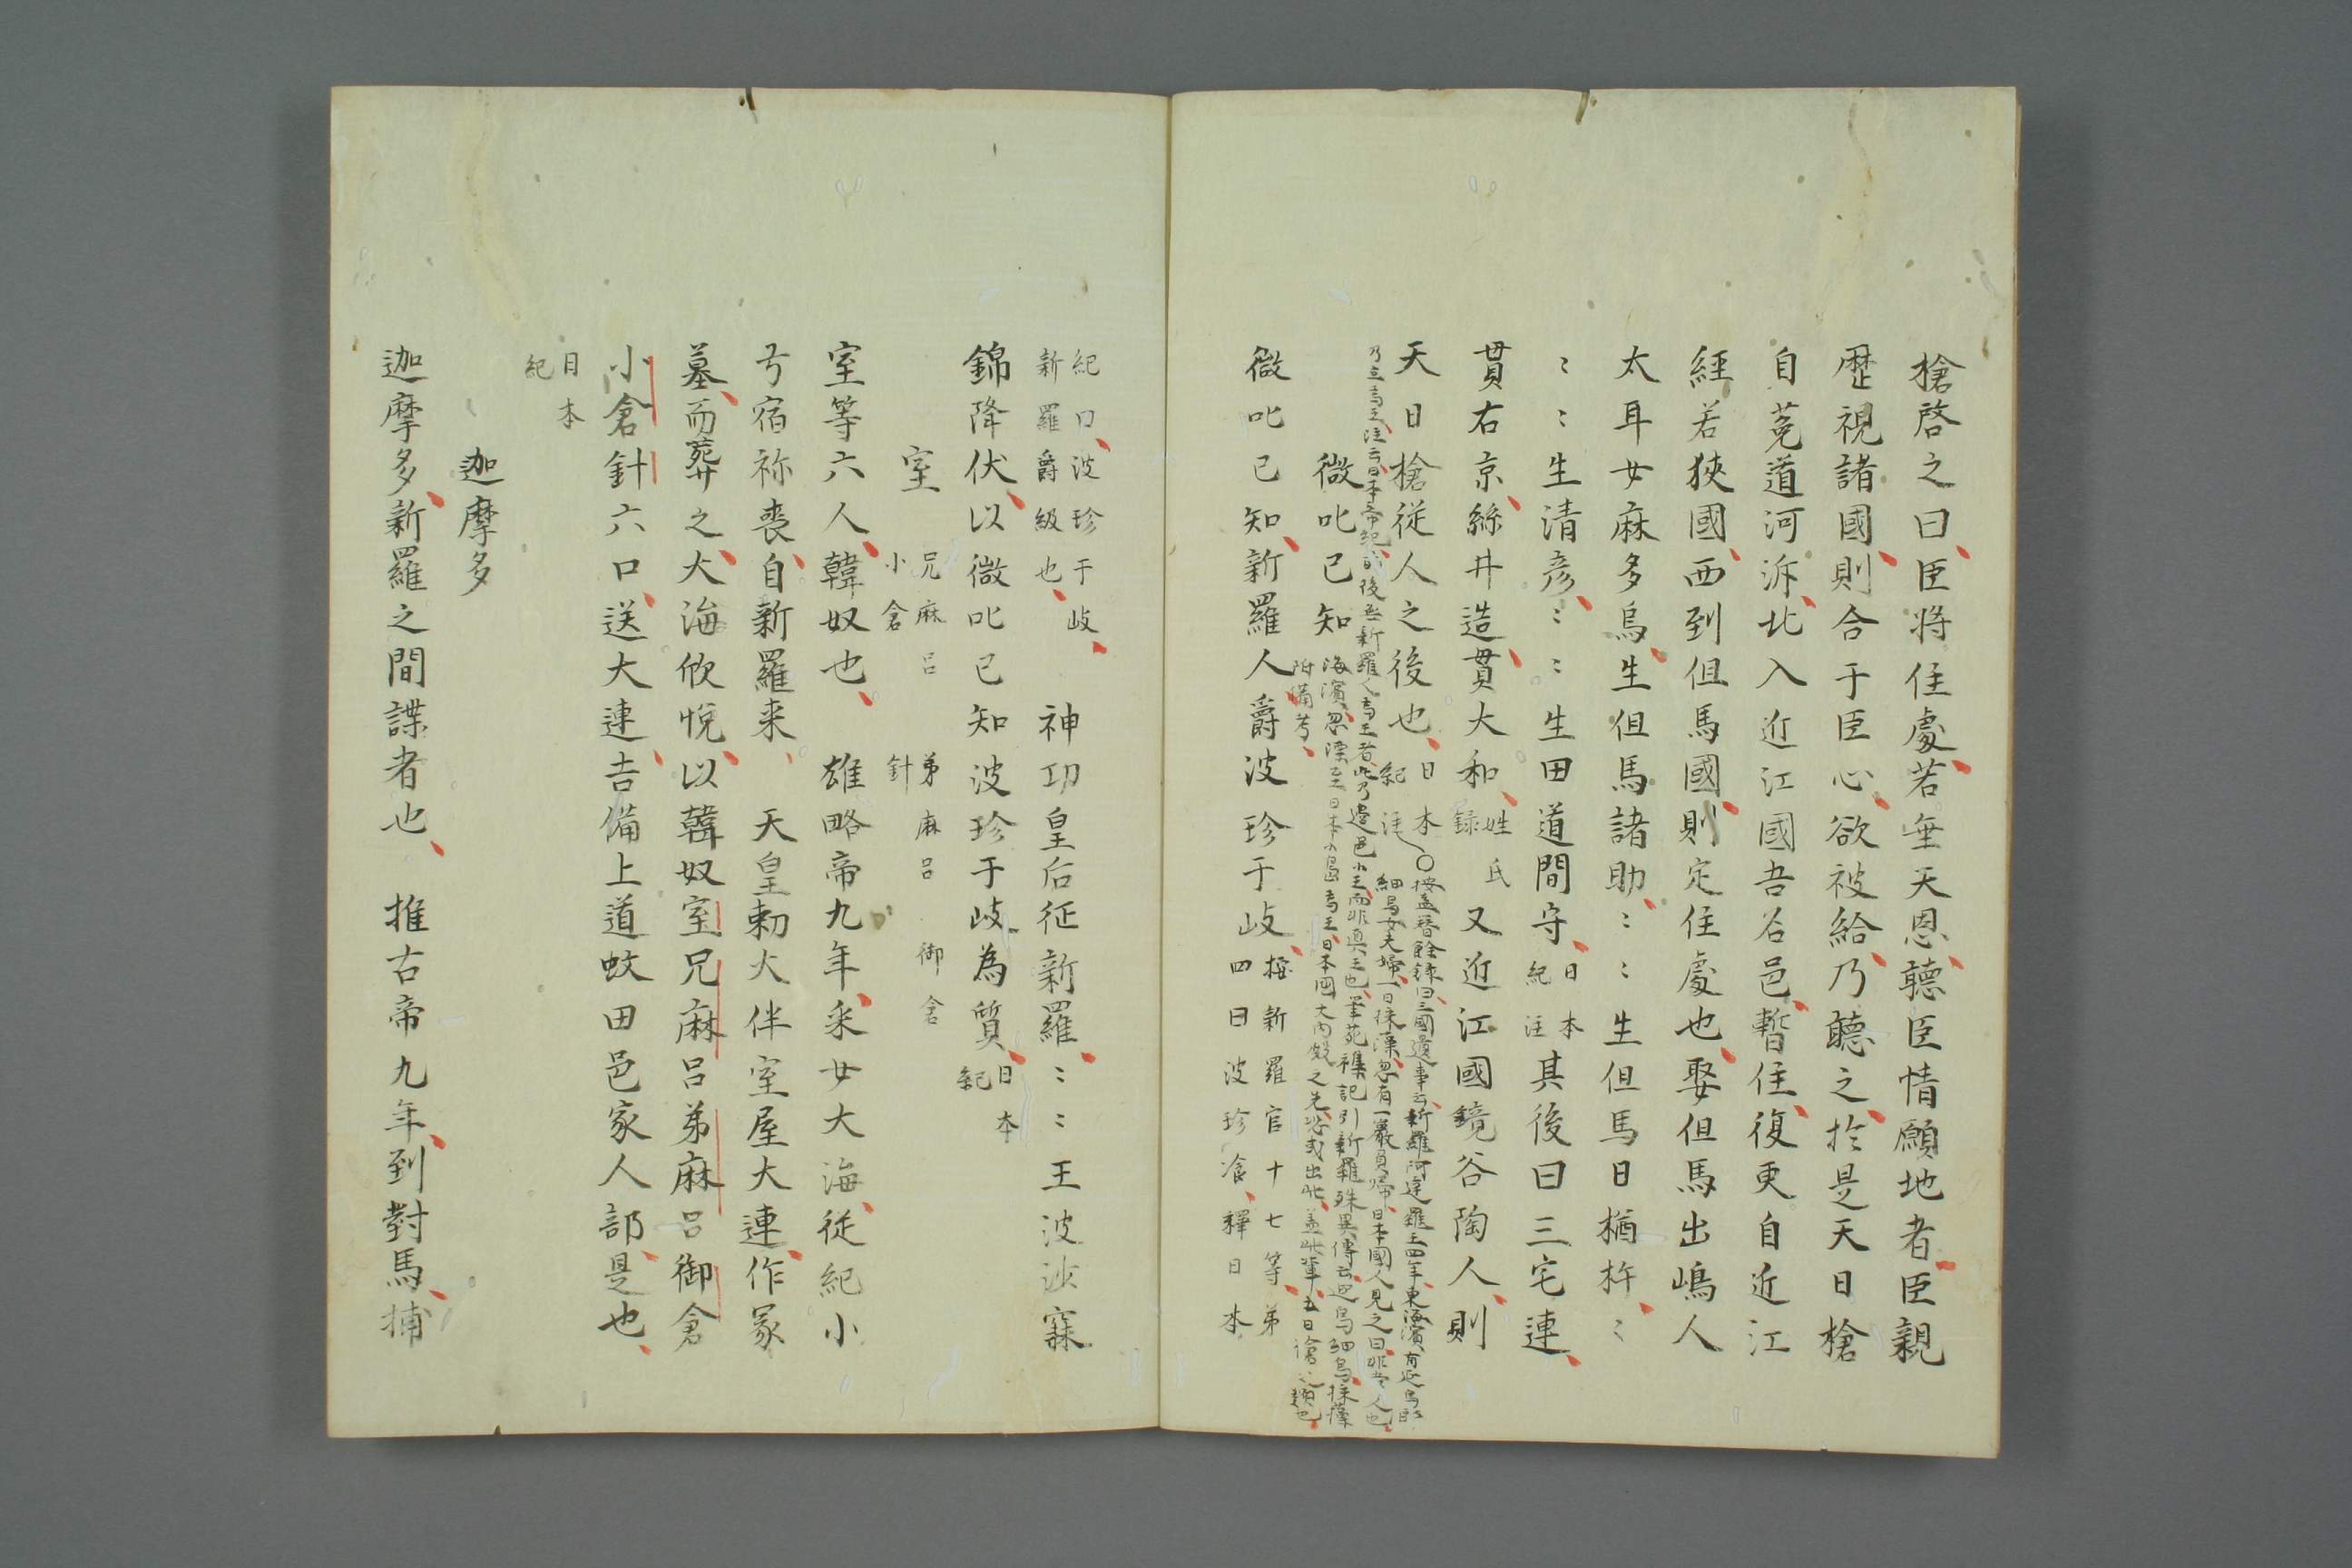 槍啓之曰臣将住處若垂天恩聽臣情願地者臣親
歴視諸國則合于臣心欲被給乃聽之於是天日槍
自莵道河泝北入近江國吾名邑暫住復更自近江
經若狹國西到但馬國則定住處也娶但馬出嶋人
太耳女麻多烏生但馬諸助〻〻生但馬日楢杵〻
〻〻生清彦〻〻生田道間守
日本
紀注
其後曰三宅連
貫右京絲井造貫大和
姓氏
録
又近江國鏡谷陶人則
天日槍従人之後也
日本
紀注
○按盖簪餘録曰三國遺事云新羅阿達羅王四年東海濱有延烏郎
細烏女夫婦一日採藻忽有一巖負帰日本國人見之曰非常人也
乃立為王注云日本帝紀前後無新羅人為王者此乃邊邑小王而非眞王也筆苑雜記引新羅殊異傳云迎烏細烏採藻
海濱忽漂至日本小島為王日本國大内殿之先
附備考
微叱已知
微叱已知新羅人爵波珍干岐
按新羅官十七等弟
四曰波珍飡釋日本
紀曰波珍干岐
新羅爵級也
神功皇后征新羅〻〻王波沙寐
錦降伏以微叱已知波珍干岐為質
日本
紀
室
兄麻呂 弟麻呂 御倉
小倉 針
室等六人韓奴也 雄略帝九年采女大海従紀小
弓宿祢喪自新羅来 天皇勅大伴室屋大連作冢
墓而葬之大海欣悅以韓奴室兄麻呂弟麻呂御倉
小倉針六口送大連吉備上道蚊田邑家人部是也
日本
紀
迦摩多
迦摩多新羅之間諜者也 推古帝九年到對馬捕